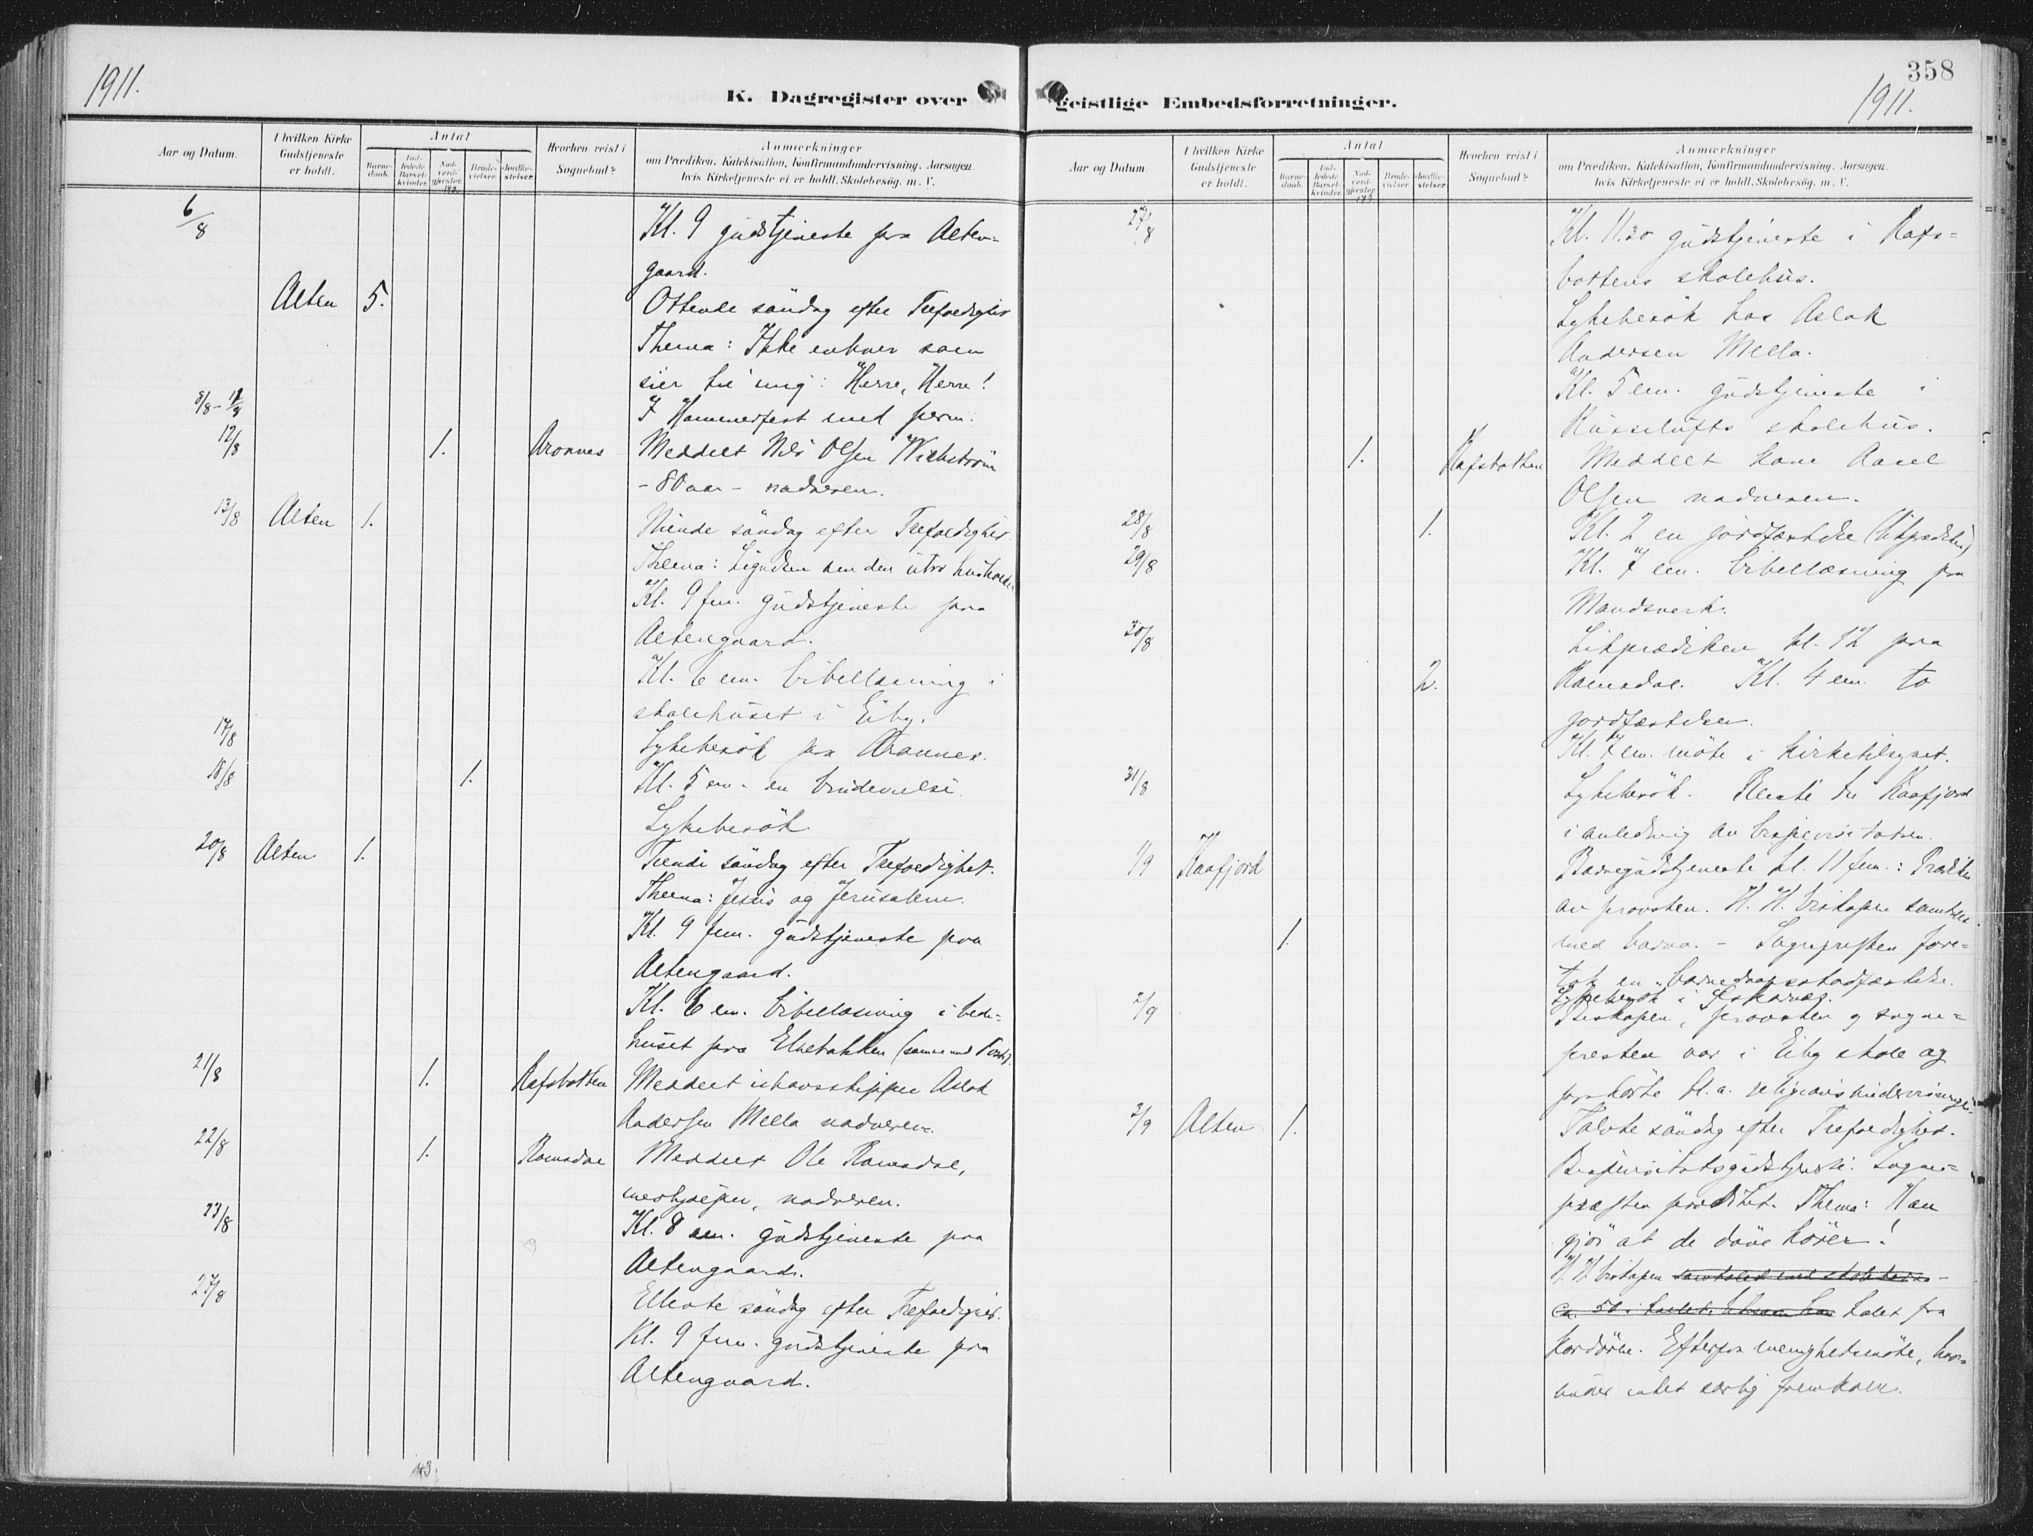 1911.
K. Dagregister over
Aar og Datum.
I hvilken Kirke Gudstjeneste er holdt.
Antal
Barnedaab.
Indledede Barselkvinder.
Nadverdgjester.
Brudevielser.
Jordfæstelser.
Hvorhen reist i Sognebud?
Anmærkninger
om Prædiken, Katekisation, Konfirmandundervisning, Aarsagen
hvis Kirketjeneste ei er holdt, Skolebesøg m. V.
6/8 Kl. 9 gudstjeneste paa Alten-
gaard.
Alten 5. Ottende söndag efter Trefoldighet.
Thema: Ikke enhver som
sier til mig: Herre, Herre!
8/8 - 11/8 I Hammerfest med perm.
12/8 1. Aronnes Meddelt Nils Olsen Wickström
- 80 aar - nadveren.
13/8 Alten 1. Niende söndag efter Trefoldighet.
Thema: Lignelsen om den utro husholder
Kl. 9 fm. gudstjeneste paa
Altengaard.
Kl. 6 em. bibellæsning i
skolehuset i Eiby.
17/8 Sykebesök paa Aronnes.
18/8 1. Kl. 5 em. en brudevielse.
Sykebesök
20/8 Alten 1. Tiende söndag efter Trefoldighet.
Thema: Jesus og Jerusalem.
Kl. 9 fm. gudstjeneste paa
Altengaard.
Kl. 6 em. bibellæsning i bede-
huset paa Elvebakken
21/8 1. Rafsbotten Meddelt ishavsskipper Aslak
Andersen Mella nadveren.
22/8 1. Ramsdal Meddelt Ole Ramsdal,
nadveren.
23/8 Kl. 8 em. gudstjeneste paa
Altengaard.
27/8 Ellevte söndag efter Trefoldighet.
Kl. 9 fm. gudstjeneste paa
Altengaard.
43
358
1911.
geistlige Embedsforretninger.
Aar og Datum.
I hvilken Kirke Gudstjeneste er holdt.
Antal
Barnedaab.
Indledede Barselkvinder.
Nadverdgjester.
Brudevielser.
Jordfæstelser.
Hvorhen reist i Sognebud?
Anmærkninger
om Prædiken, Katekisation, Konfirmandundervisning, Aarsagen
hvis Kirketjeneste ei er holdt, Skolebesøg m. V.
27/8 Kl. 11.30 gudstjeneste i Rafs-
bottens skolehus.
Sykebesök hos Aslak
Andersen Mella.
Kl. 5 em. gudstjeneste i
Russelufts skolehus.
1. Rafsbotten Meddelt kone
Olsen nadveren.
28/8 1. Kl. 2 en jordfæstelse (likprædiken)
29/8 Kl. 7 em. bibellæsning paa
Mandsverk.
30/8 Likprædiken kl. 12 paa
2. Ramsdal. Kl. 4 em. to
jordfæstelser.
Kl. 7 em. möte i kirketilsynet.
31/8 Sykebesök. Reiste til Kaafjord
i anledning av bispevisitatsen.
1/9 Kaafjord Barnegudstjeneste kl. 11 fm.: Prædiken
av provsten. H. H. biskopen samtalte
1. med barna. - Sognepresten fore-
tok en barnedaapsstadfæstelse.
2/9 Sykebesök i
Biskopen, provsten og sogne-
presten var i Eiby skole og
paahörte bl. a. religionsundervisningen.
3/9 Alten 1. Tolvte söndag efter Trefoldighet.
Bispevisitatsgudstjeneste. Sogne-
presten prædiket. Thema: Han
gjör at de döve hörer!
H. H. biskopen samtaled med skolebarna -
ca. 50 i tallet. talet fra
kordören. Efterpaa menighedsmöte, hvor-
under intet særlig fremkom.